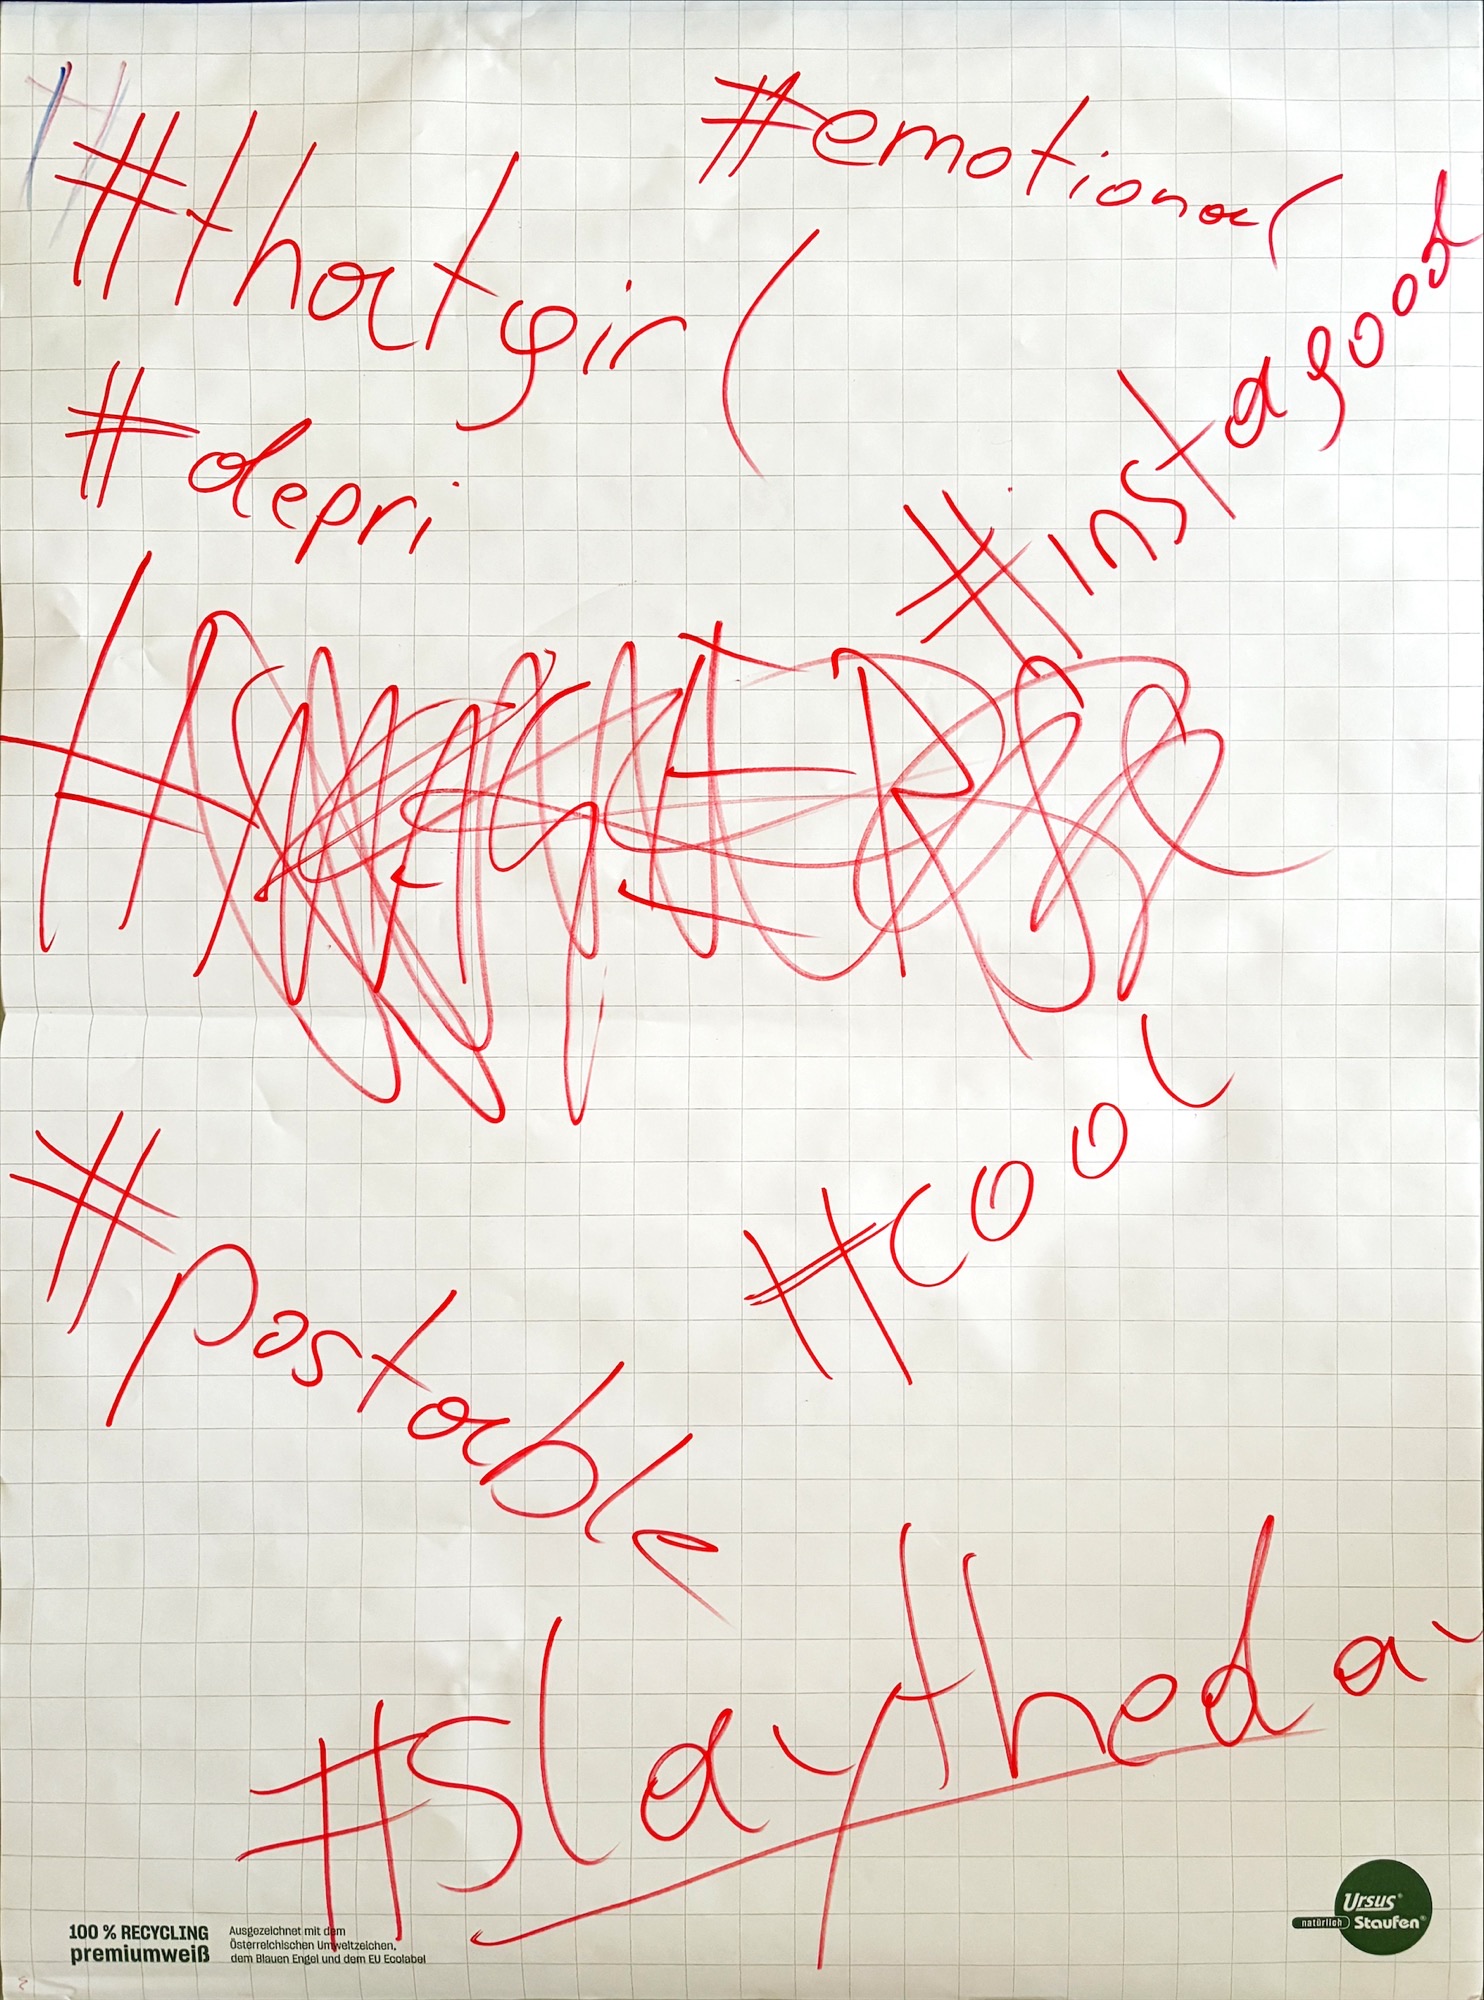 #thatgirl
#emotional
#instagood
#depri
#cool
#postable
#slaytheday
100 % RECYCLING
premiumweiß
Ausgezeichnet mit dem
Österreichischen Umweltzeichen,
dem Blauen Engel und dem EU Ecolabel
Ursus®
natürlich Staufen®